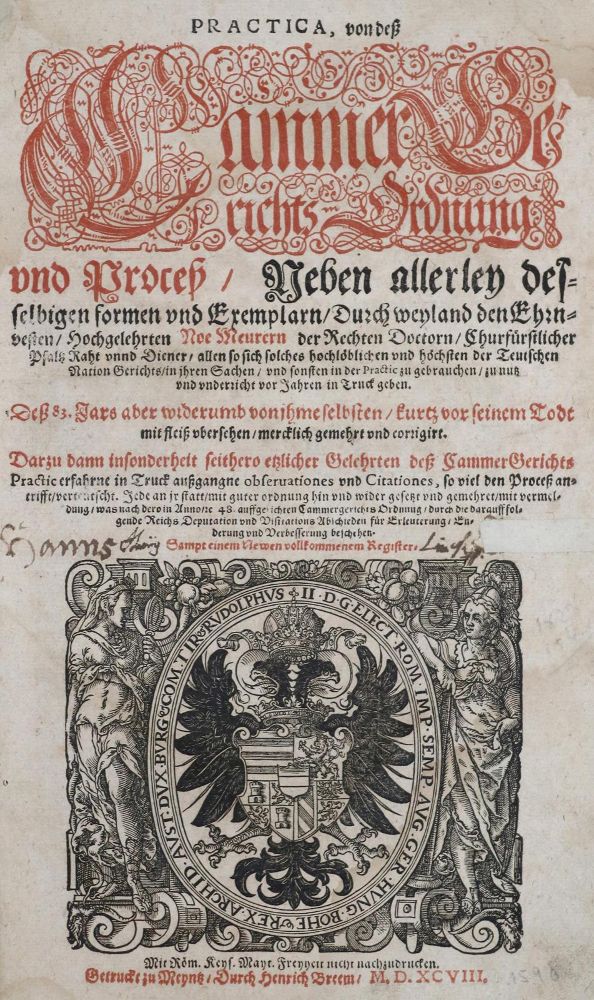 PRACTICA, von deß
Cammer Ge-
richts Ordnung
vnd Proceß / Neben allerley des-
selbigen formen vnd Exemplarn / Durch weyland den Ehrn-
vesten / Hochgelehrten Noe Meurern der Rechten Doctorn / Churfürstlicher
Pfaltz Raht vnnd Diener / allen so sich solches hochlöblichen vnd höchsten der Teutschen
Nation Gerichts / in jhren Sachen / vnd sonsten in der Practic zu gebrauchen / zu nutz
vnd vnderricht vor Jahren in Truck geben.
Deß 83. Jars aber widerumb von jhme selbsten / kurtz vor seinem Todt
mit fleiß vbersehen / mercklich gemehrt vnd corrigirt.
Darzu dann insonderheit seithero etzlicher Gelehrten deß CammerGerichts
Practic erfahrne in Truck außgangne observationes vnd Citationes, so viel den Proceß an-
trifft / verteutscht. Jede an jr statt / mit guter ordnung hin vnd wider gesetzt vnd gemehret / mit vermel-
dung / was nach dero in Anno &c. 48. auffgerichten Cammergerichts Ordnung / durch die darauff fol-
gende Reichs Deputation vnd Visitations Abschieden für Erleuterung / En-
derung vnd Verbesserung beschehen.
Hanns
Sampt einem Newen vollkommenem Register.
RVDOLPHVS II D G ELECT ROM IMP SEMP AVG GER HVNG BOHE & REX ARCHID AVST DVX BVRG & COM TIR
Mit Röm. Keys. Mayt. Freyheit nicht nachzudrucken.
Getruckt zu Meyntz / Durch Henrich Breem / M. D. XCVIII.